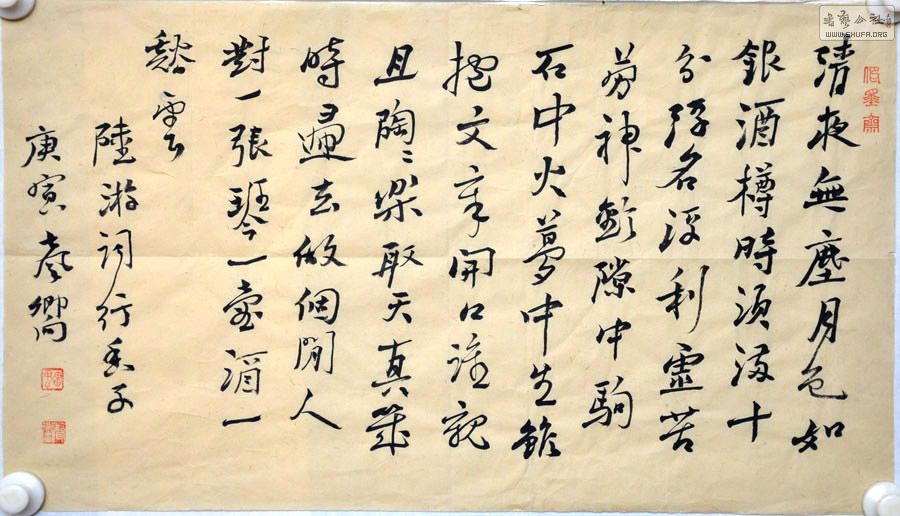 清夜無塵月色如
銀酒樽時須滿十
分浮名浮利虛苦
勞神歎隙中駒
石中火夢中生雖
抱文章開口誰親
且陶〻樂取天真幾
時歸去做個閒人
對一張琴一壺酒一
谿雲
陸游詞行香子
庚寅
書藝公社
WWW.SHUFA.ORG